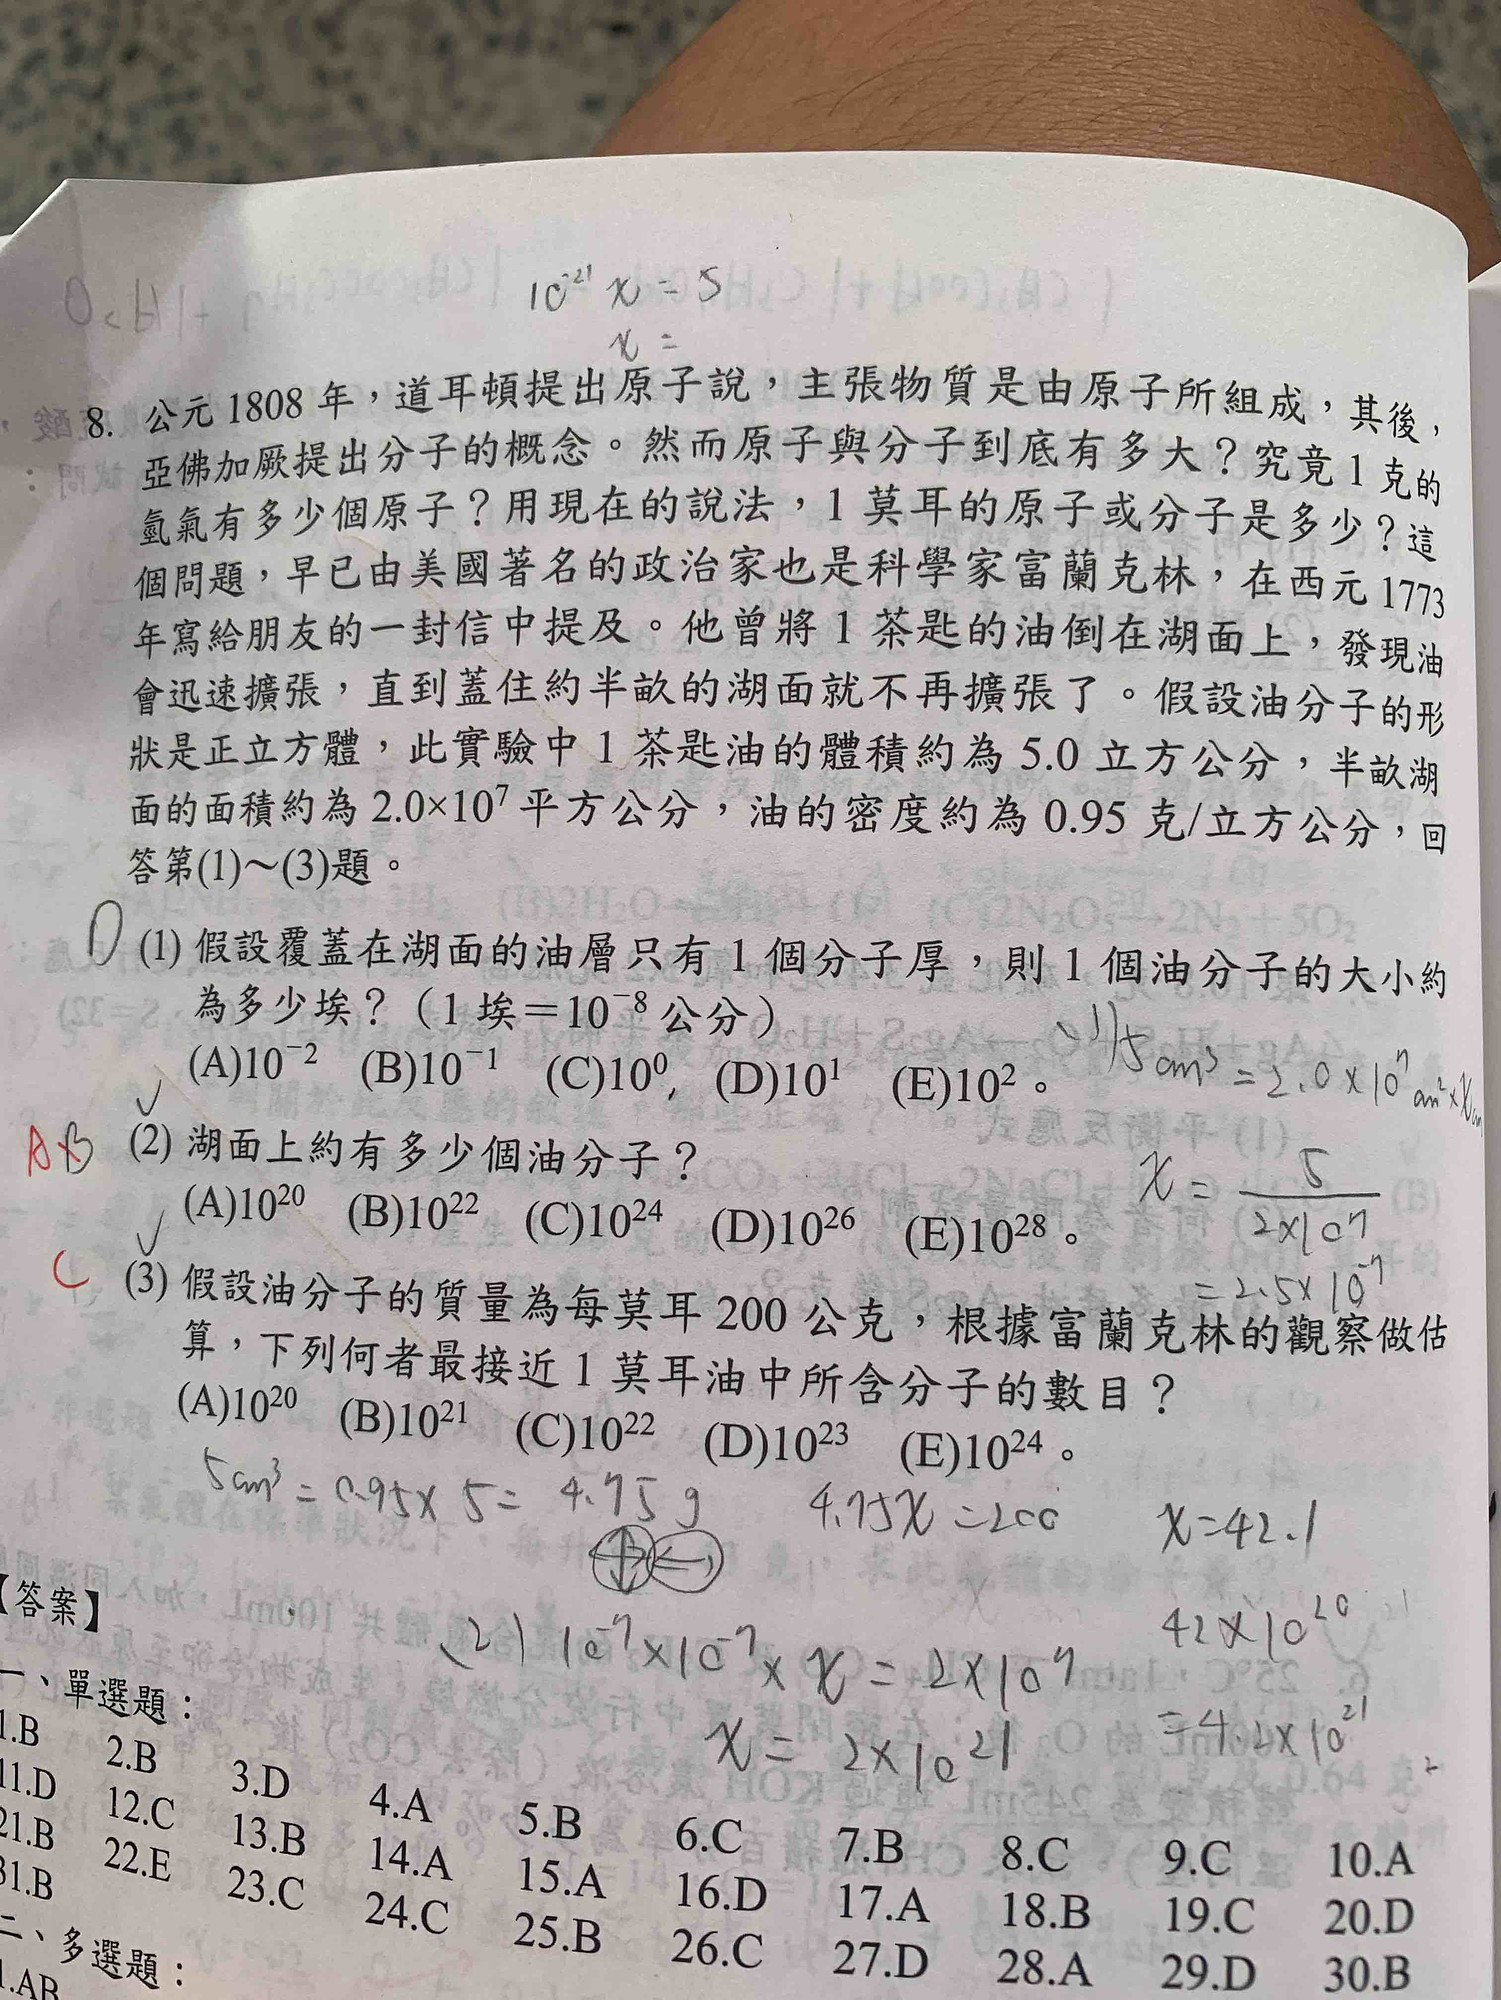 10⁻²¹ x = 5
x =
8. 公元 1808 年，道耳頓提出原子說，主張物質是由原子所組成，其後，
亞佛加厥提出分子的概念。然而原子與分子到底有多大？究竟 1 克的
氫氣有多少個原子？用現在的說法，1 莫耳的原子或分子是多少？這
個問題，早已由美國著名的政治家也是科學家富蘭克林，在西元 1773
年寫給朋友的一封信中提及。他曾將 1 茶匙的油倒在湖面上，發現油
會迅速擴張，直到蓋住約半畝的湖面就不再擴張了。假設油分子的形
狀是正立方體，此實驗中 1 茶匙油的體積約為 5.0 立方公分，半畝湖
面的面積約為 2.0×10⁷ 平方公分，油的密度約為 0.95 克/立方公分，回
答第(1)～(3)題。
D (1) 假設覆蓋在湖面的油層只有 1 個分子厚，則 1 個油分子的大小約
為多少埃？（1 埃＝10⁻⁸ 公分）
(A)10⁻² (B)10⁻¹ (C)10⁰ (D)10¹ (E)10²。
5cm³ = 2.0×10⁷ cm² × x cm
AB (2) 湖面上約有多少個油分子？
x = 5/2×10⁷
(A)10²⁰ (B)10²² (C)10²⁴ (D)10²⁶ (E)10²⁸。
= 2.5×10⁻⁷
C (3) 假設油分子的質量為每莫耳 200 公克，根據富蘭克林的觀察做估
算，下列何者最接近 1 莫耳油中所含分子的數目？
(A)10²⁰ (B)10²¹ (C)10²² (D)10²³ (E)10²⁴。
5cm³ = 0.95×5 = 4.75g 4.75x = 200 x=42.1
42×10²⁰
(2) 10⁻⁷×10⁻⁷×x = 2×10⁷
x = 2×10²¹
=4.2×10²¹
【答案】
一、單選題：
1.B 2.B 3.D 4.A 5.B 6.C 7.B 8.C 9.C 10.A
11.D 12.C 13.B 14.A 15.A 16.D 17.A 18.B 19.C 20.D
21.B 22.E 23.C 24.C 25.B 26.C 27.D 28.A 29.D 30.B
31.B
二、多選題：
1.AB